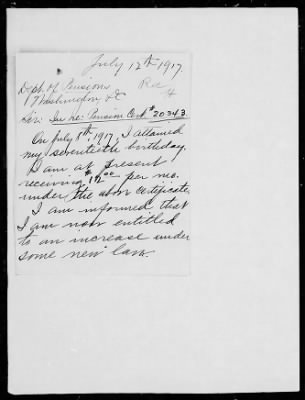 July 12th 1917.
Dept. of Pensions Ra
Washington, DC 4
Sir: In re: Pension Cert # 20343.
On July 8th, 1917, I attained
my seventieth birthday.
I am at present
receiving $12.00 per mo.
under the above certificate.
I am informed that
I am now entitled
to an increase under
some new law.